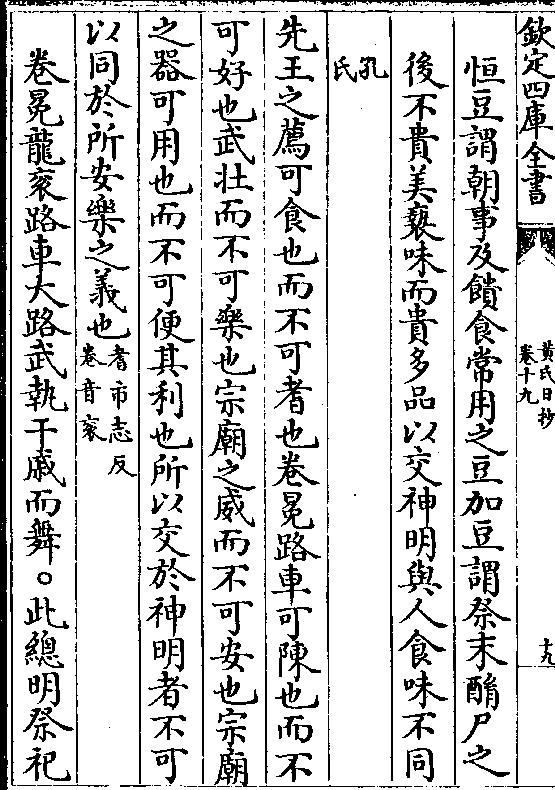 欽定四庫全書
黃氏日抄
卷十九
十九
恒豆謂朝事及饋食常用之豆加豆謂祭末酳尸之
後不貴美褻味而貴多品以交神明與人食味不同
孔氏
先王之薦可食也而不可耆也卷冕路車可陳也而不
可好也武壯而不可樂也宗廟之威而不可安也宗廟
之器可用也而不可便其利也所以交於神明者不可
以同於所安樂之義也
耆市志反
卷音衮
卷冕龍衮路車大路武執干戚而舞○此總明祭祀